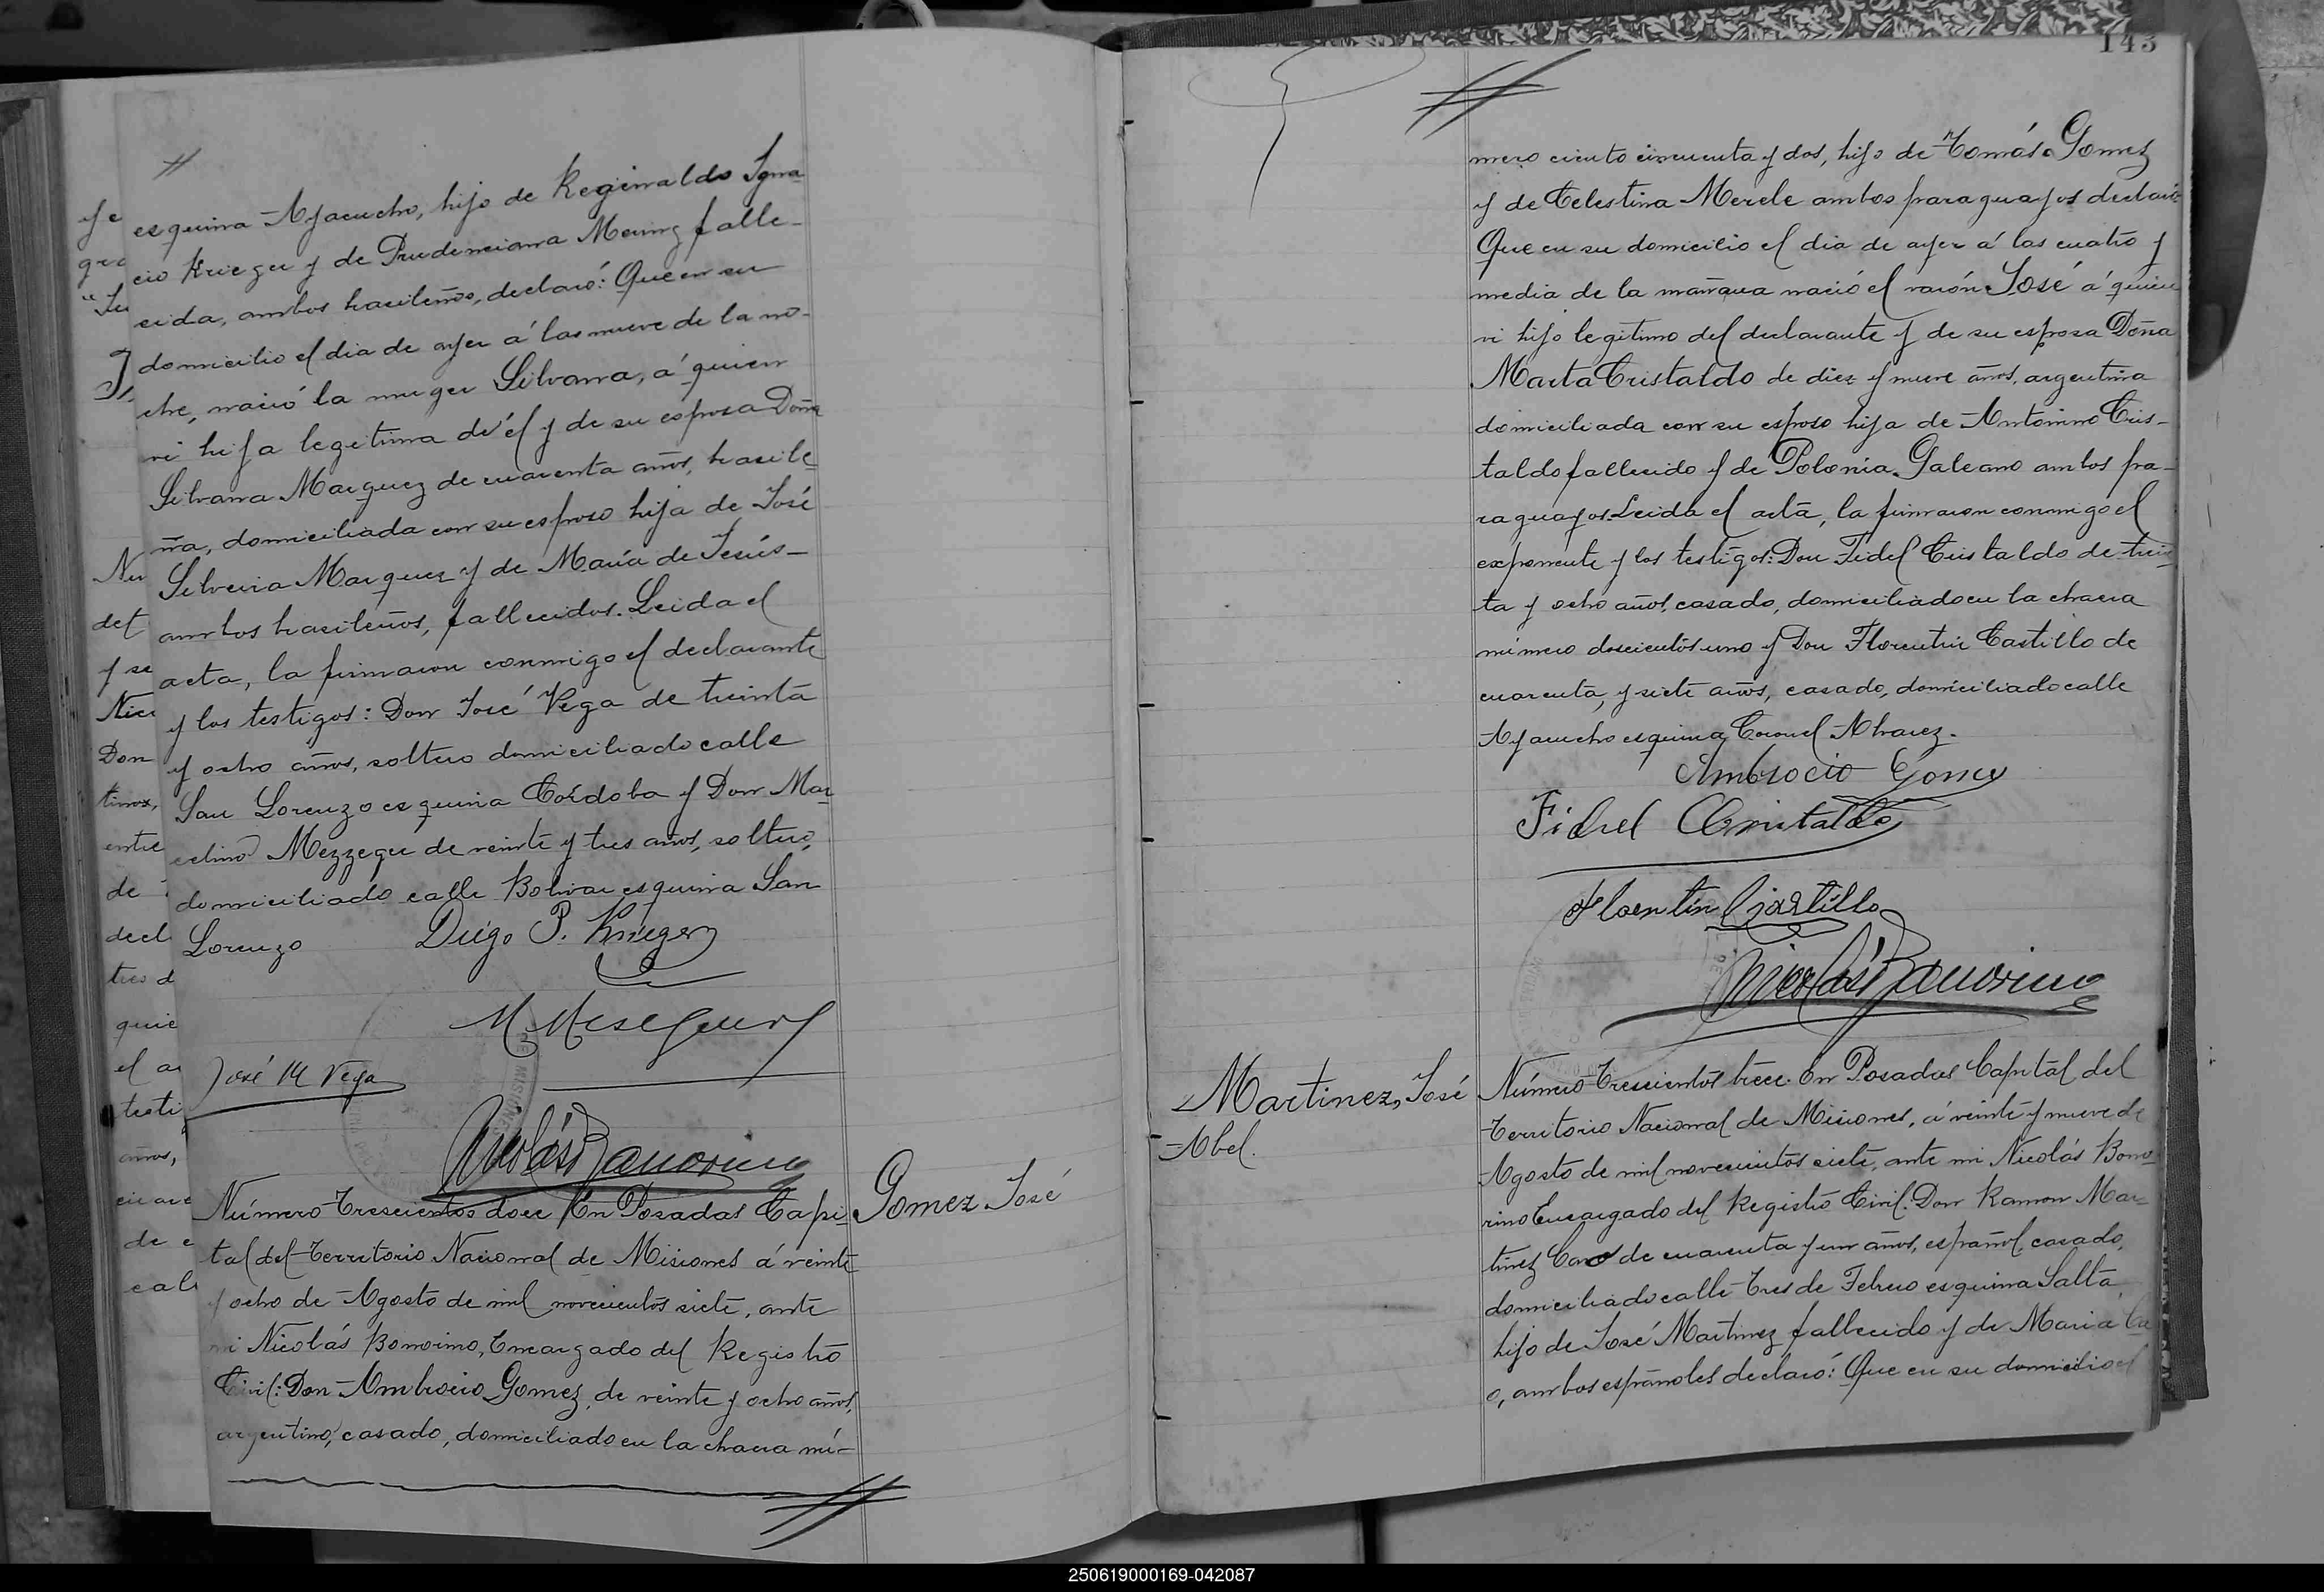 esquina Ayacucho, hijo de Reginaldo Igna-
cio Krieger y de Prudenciana Meurng falle-
cida, ambos brasileños, declaró: Que en su
domicilio el dia de ayer á las nueve de la no-
che, nació la muger Silvana, á quien
vi hija legitima de él y de su esposa Doña
Silvana Marquez de cuarenta años, brasile-
ña, domiciliada con su esposo hija de José
Silveria Marquez y de María de Jesús-
ambos brasileños, fallecidos. Leida el
acta, la firmaron conmigo el declarante
y los testigos: Don José Vega de treinta
y ocho años, soltero domiciliado calle
San Lorenzo esquina Córdoba y Don Mar-
celino Mezzegue de veinte y tres años, soltero,
domiciliado calle Bolivar esquina San
Lorenzo
Diego P. Krieger
M Meseguer
José M Vega
Nicolás Bonorino
Gomez José
Número Trescientos doce En Posadas Capi-
tal del Territorio Nacional de Misiones á veinte
y ocho de Agosto de mil novecientos siete, ante
mi Nicolás Bonorino, Encargado del Registro
Civil: Don Ambrocio Gomez, de veinte y ocho años,
argentino, casado, domiciliado en la chacra nú-
143
mero ciento cincuenta y dos, hijo de Tomás Gomez
y de Celestina Merele ambos paraguayos declaró:
Que en su domicilio el dia de ayer á las cuatro y
media de la mañana nació el varón José á quien
vi hijo legitimo del declarante y de su esposa Doña
Marta Cristaldo de diez y nueve años, argentina
domiciliada con su esposo hija de Antonino Cris-
taldo fallecido y de Polonia Galeano ambos pa-
raguayos. Leida el acta, la firmaron conmigo el
exponente y los testigos: Don Fidel Cristaldo de trein-
ta y ocho años, casado, domiciliado en la chacra
número doscientos uno y Don Florentin Castillo de
cuarenta, y siete años, casado, domiciliado calle
Ayacucho esquina Coronel Alvarez.
Ambrocio Gomez
Fidel Cristaldo
Florentin Castillo
Nicolás Bonorino
Martinez, José
Abel.
Número Trescientos trece. En Posadas Capital del
Territorio Nacional de Misiones, á veinte y nueve de
Agosto de mil novecientos siete, ante mi Nicolás Bono-
rino Encargado del Registro Civil: Don Ramon Mar-
tinez Cano de cuarenta y un años, español, casado,
domiciliado calle Tres de Febrero esquina Salta,
hijo de José Martinez fallecido y de Maria Ca
o, ambos españoles declaró: Que en su domicilio el
250619000169-042087